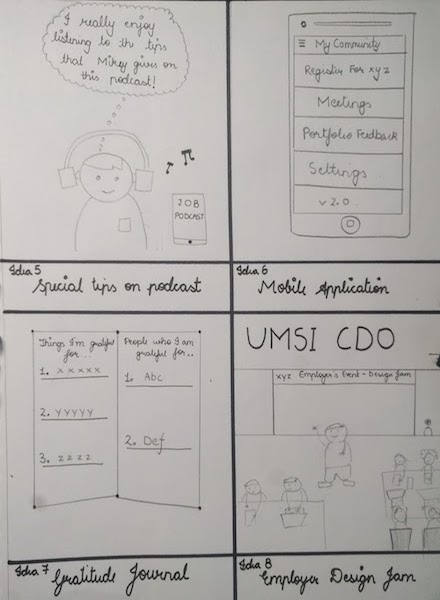 I really enjoy
listening to the tips
that Mikey gives on
this podcast!
JOB
PODCAST
Idea 5
Special tips on podcast
My Community
Register For xyz
Meetings
Portfolio Feedback
Settings
v 2.0
Idea 6
Mobile Application
Things I'm grateful
for...
1. x x x x x
2. y y y y y
3. z z z z
People who I am
grateful for..
1. Abc
2. Def
Idea 7
Gratitude Journal
UMSI CDO
xyz Employer's Event - Design Jam
Idea 8
Employer Design Jam